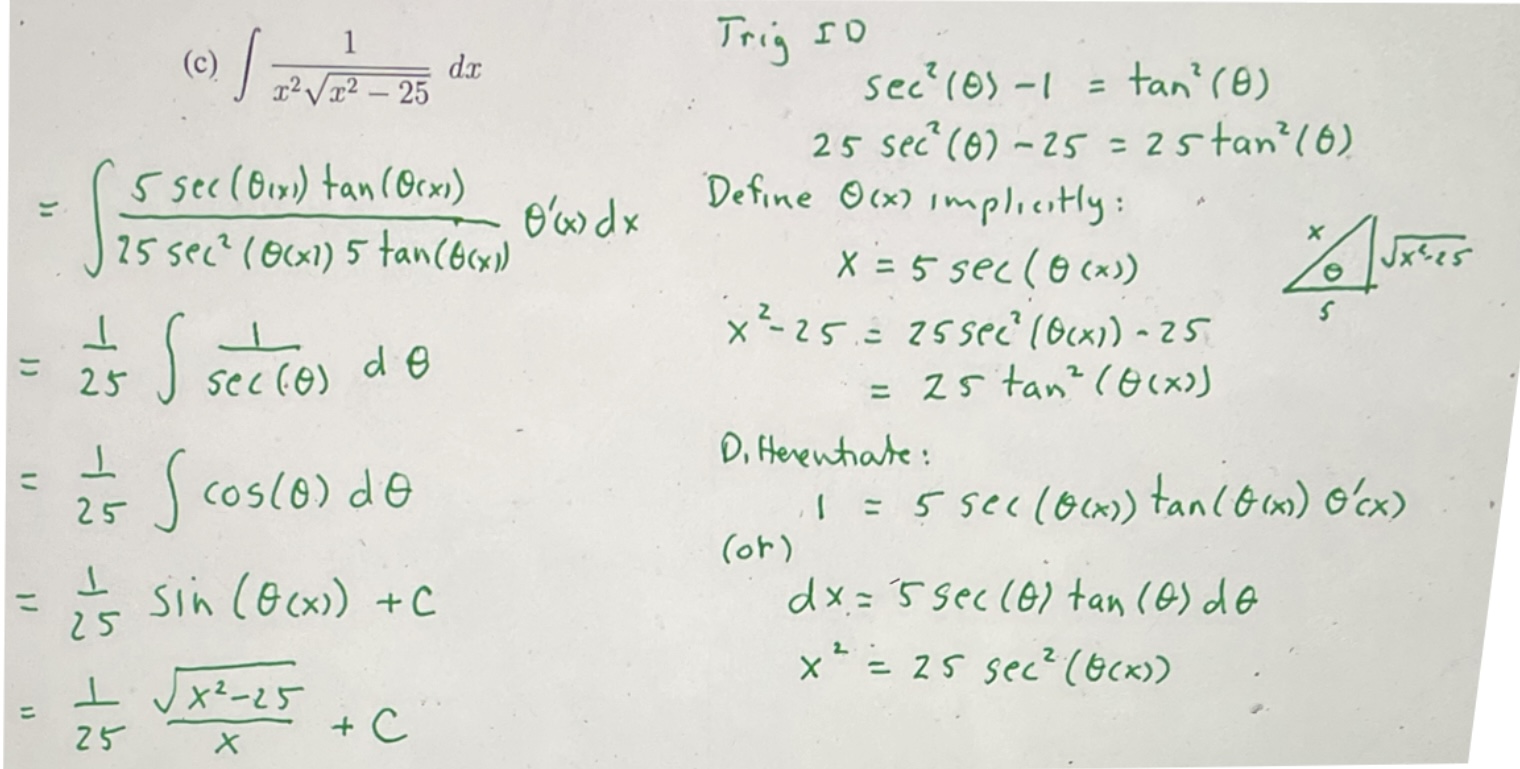 (c) ∫ 1/(x²√(x² − 25)) dx
= ∫ (5 sec(θ(x)) tan(θ(x)))/(25 sec²(θ(x)) 5 tan(θ(x))) θ'(x) dx
= 1/25 ∫ 1/sec(θ) dθ
= 1/25 ∫ cos(θ) dθ
= 1/25 sin(θ(x)) + C
= 1/25 √(x²−25)/x + C
Trig ID
sec²(θ) − 1 = tan²(θ)
25 sec²(θ) − 25 = 25 tan²(θ)
Define θ(x) implicitly:
x = 5 sec(θ(x))
x
θ
√x²−25
5
x² − 25 = 25 sec²(θ(x)) − 25
= 25 tan²(θ(x))
Differentiate:
1 = 5 sec(θ(x)) tan(θ(x) θ'(x)
(or)
dx = 5 sec(θ) tan(θ) dθ
x² = 25 sec²(θ(x))